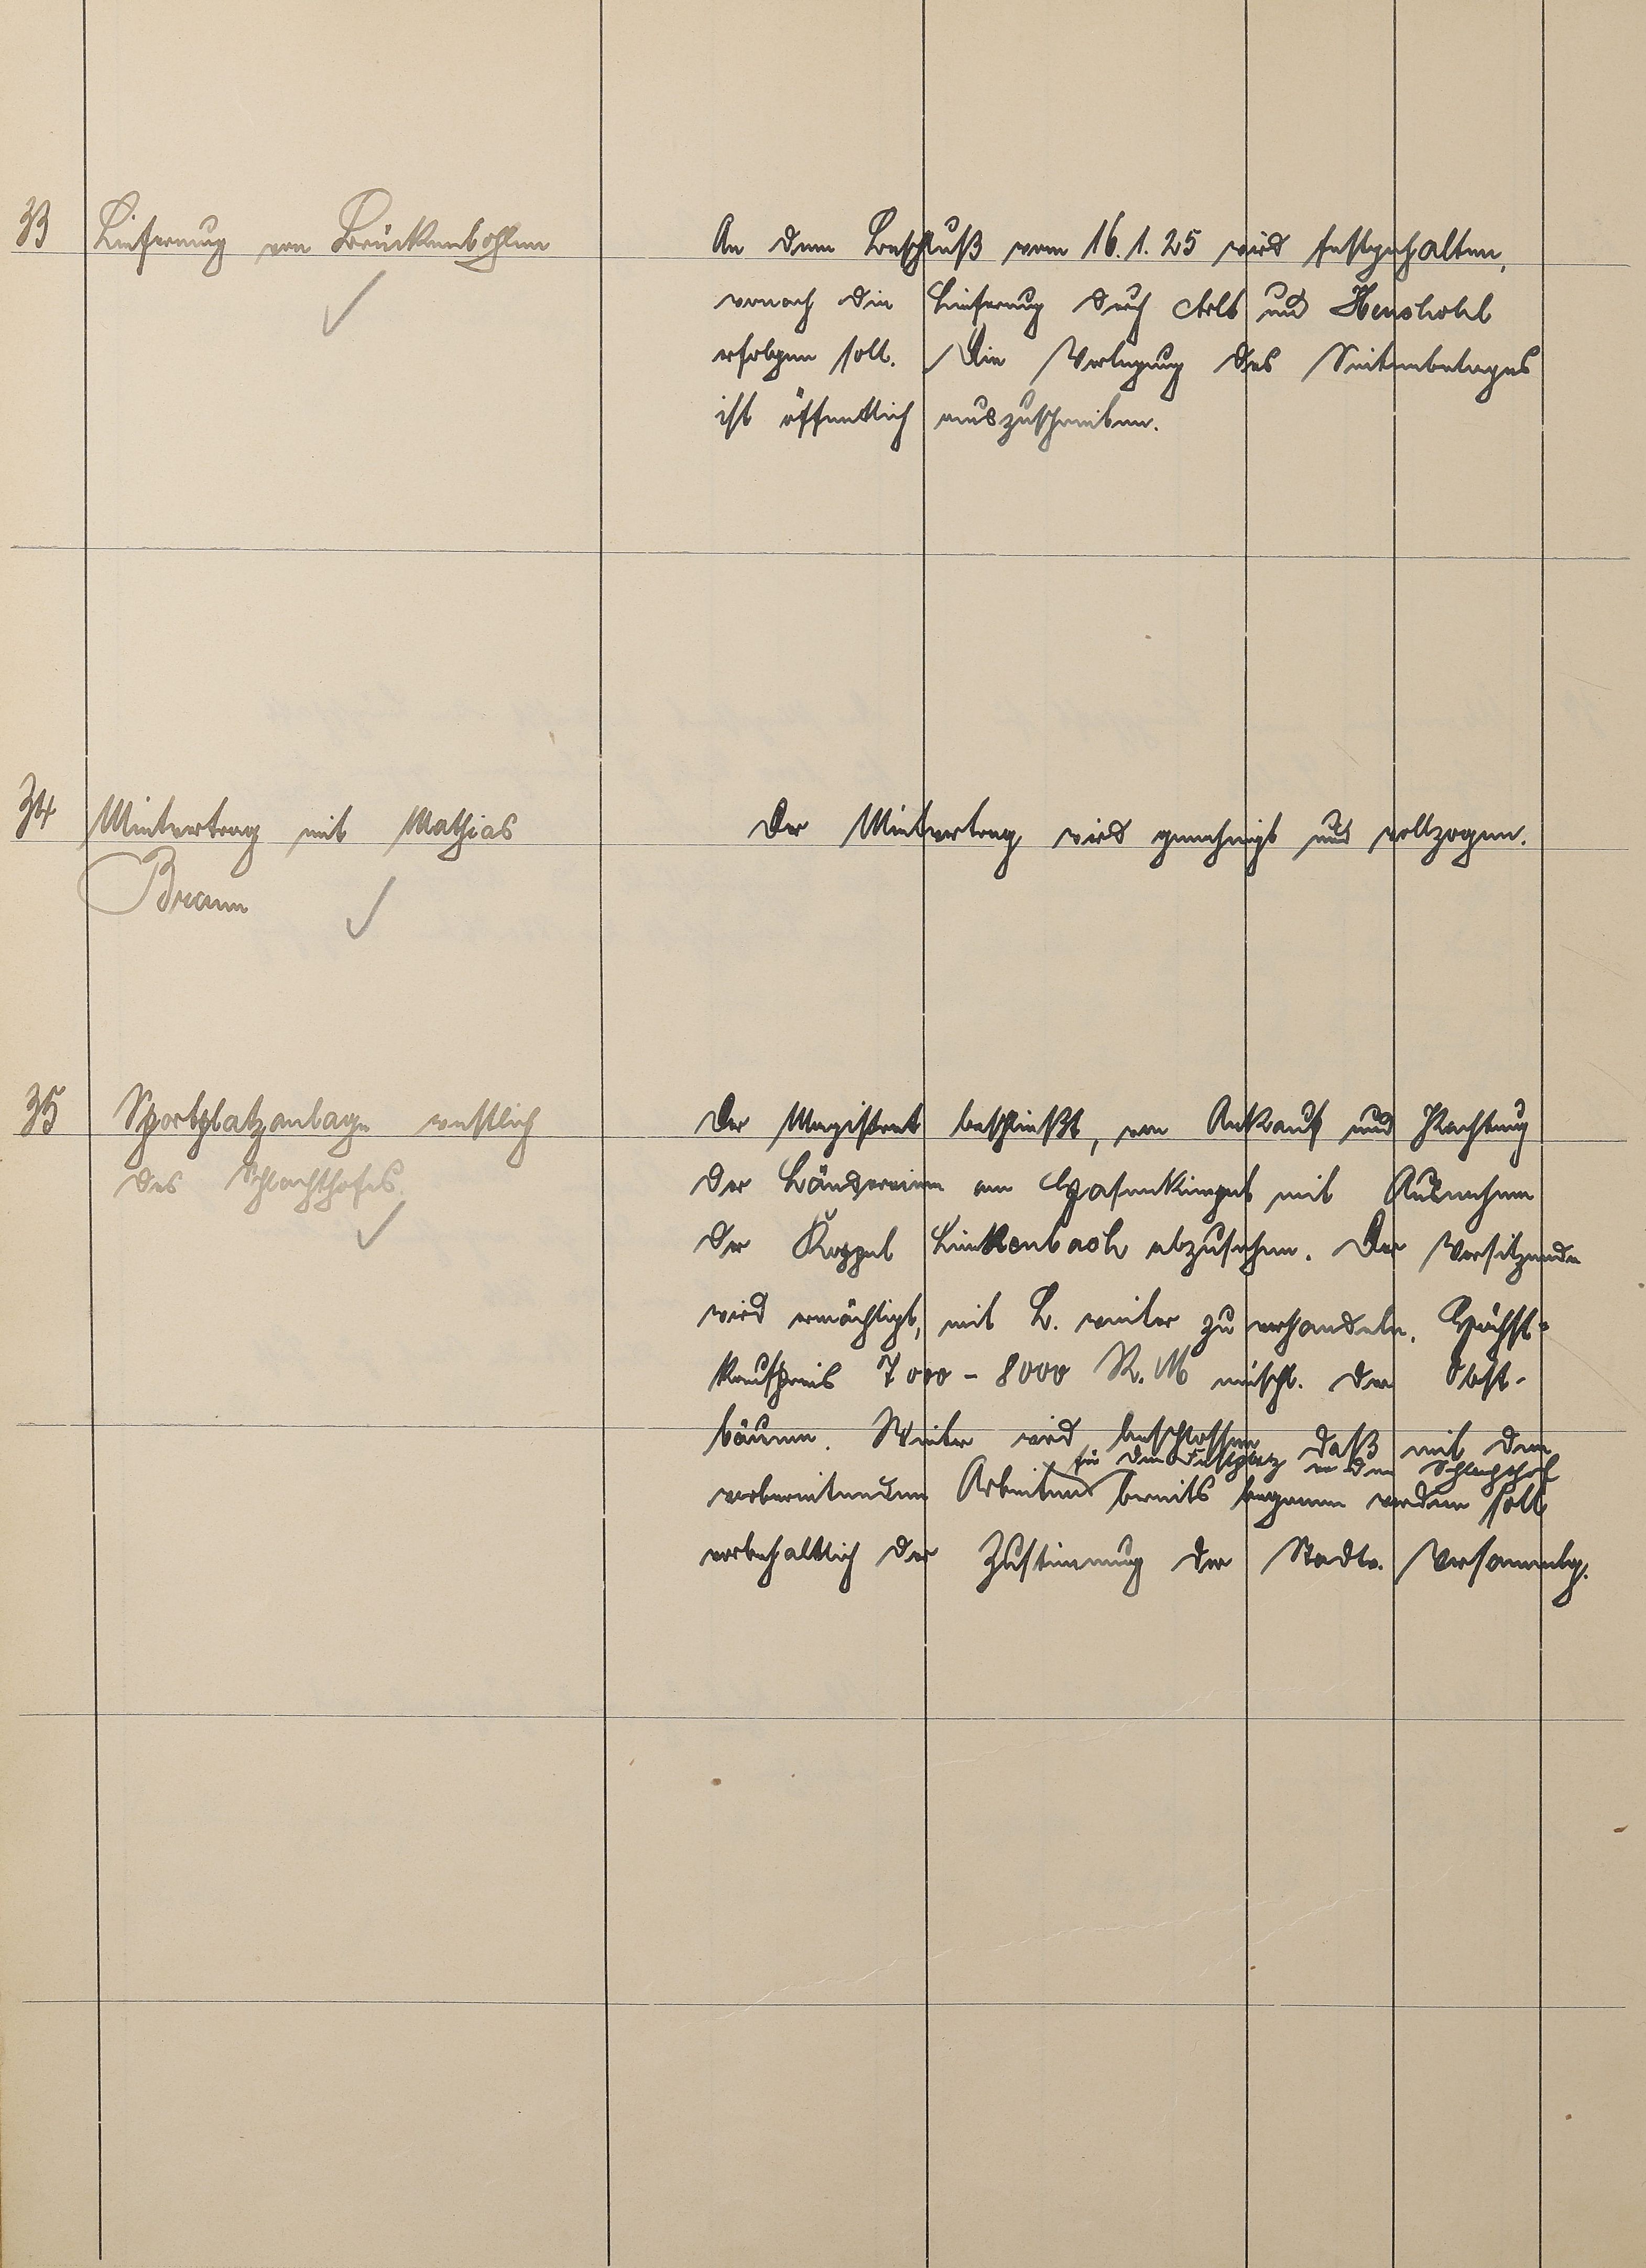 33 Lieferung von Brückenbohlen
An dem Beschluß vom 16.1.25 wird festgehalten,
wonach die Lieferung durch Arlt und
erfolgen soll. Die Verlegung des Seitenbelages
ist öffentlich auszuschreiben.
34 Mietvertrag mit Mathias
Braun
Der Mietvertrag wird genehmigt und vollzogen.
35 Sportplatzanlage westlich
des Schlachthofes
Der Magistrat beschließt, von Ankauf und Pachtung
der Ländereien am mit Ausnahme
der Koppel Linkenbach abzusehen. Der Vorsitzende
wird ermächtigt, mit L. weiter zu verhandeln. Höchst-
kaufpreis 7000 - 8000 R.M einschl. der Obst-
bäume. Weiter wird beschlossen daß mit den
für den Festplatz vor dem Schlachthof
vorbereitenden Arbeiten bereits begonnen werden soll
vorbehaltlich der Zustimmung der Stadtv. Versammlg.